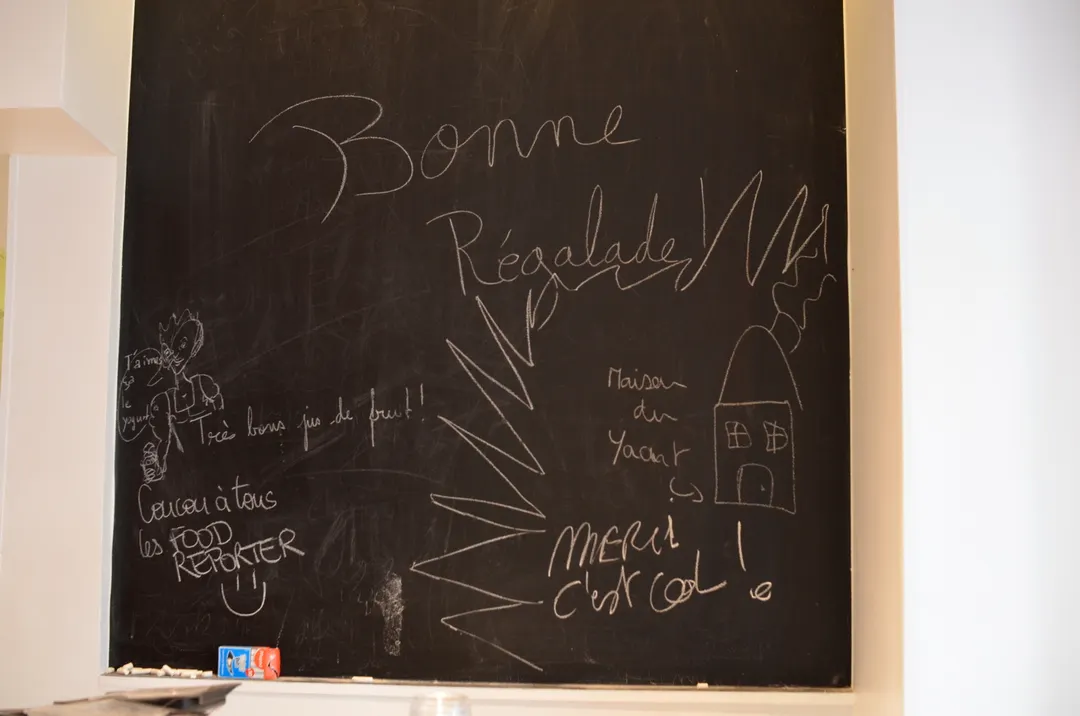 Bonne
Régalade!
J'aime
ça
le
yaourt
Très bons jus de fruit!
Coucou à tous
les FOOD
REPORTER
Maison
du
Yaourt
MERCI
c'est cool!